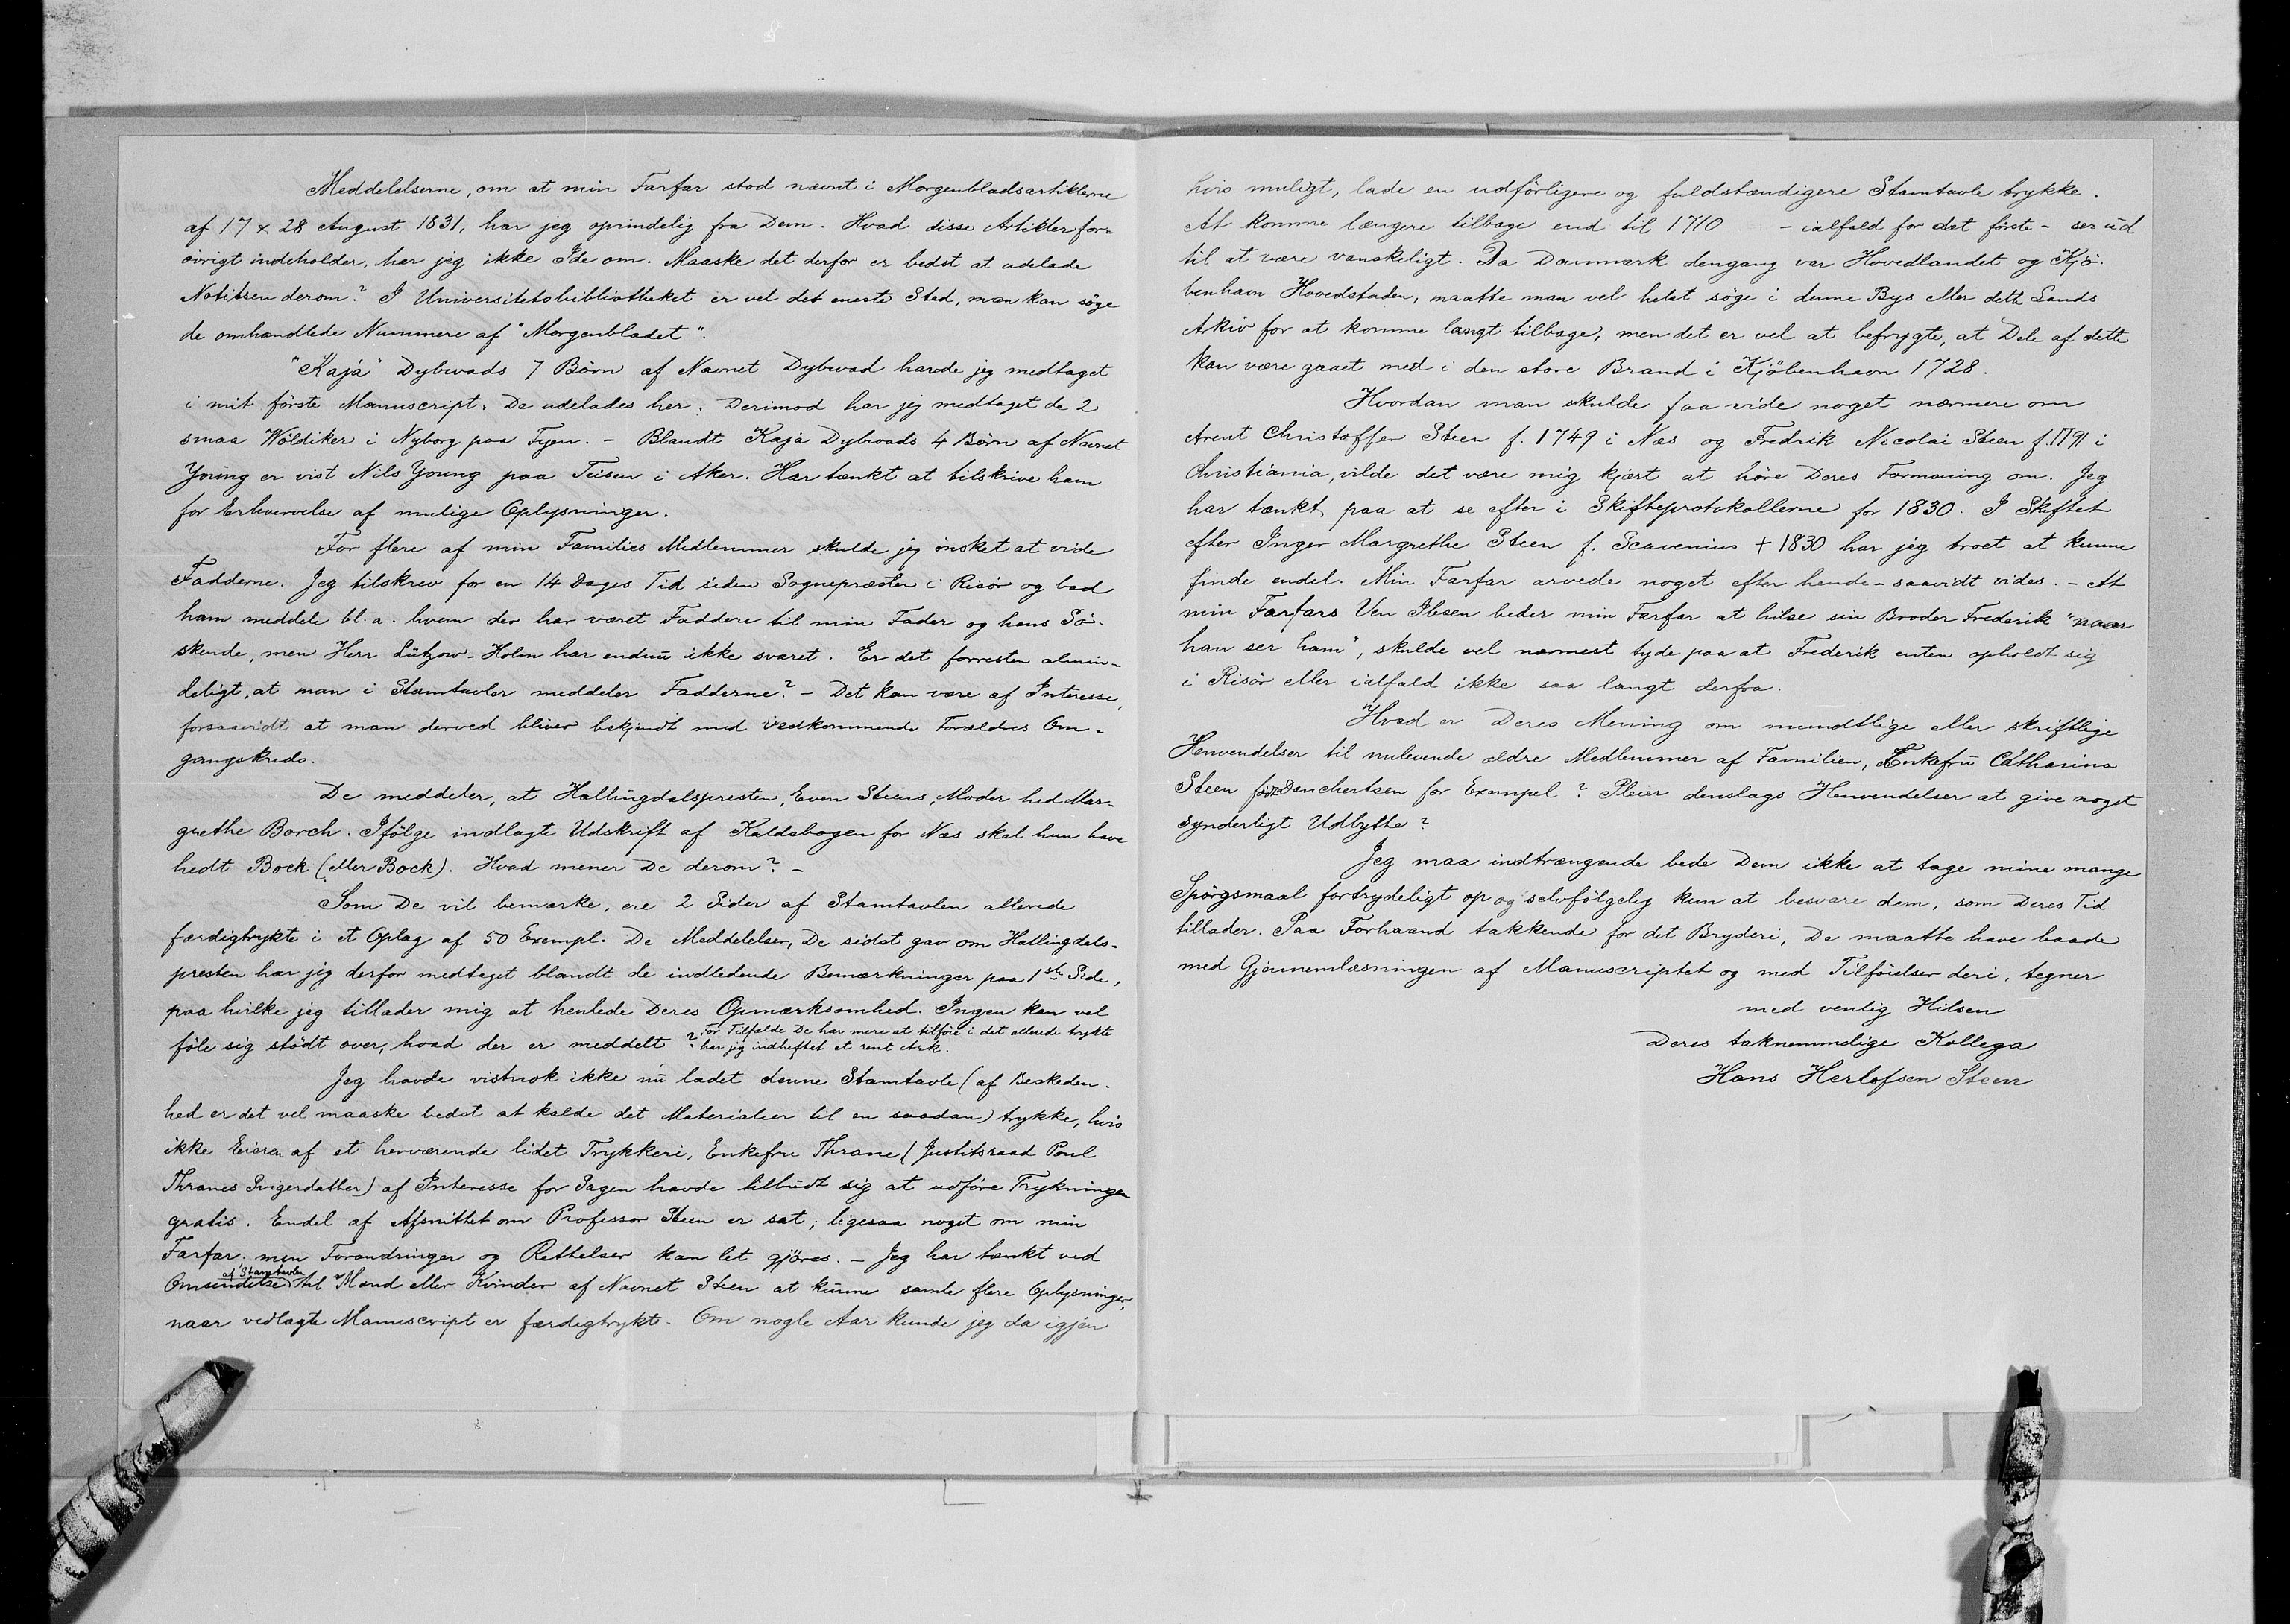 Meddelelserne, om at min Farfar stod nævnt i Morgenbladsartiklerne
af 17 & 28 August 1831, har jeg oprindelig fra Dem. Hvad disse Artikler for-
övrigt indeholder, har jeg ikke Ide om. Maaske det derfor er bedst at udelade
Notitsen derom? I Universitetsbibliotheket er vel det eneste Sted, man kan söge
de omhandlede Nummere af "Morgenbladet".
"Kaja" Dybwads 7 Börn af Navnet Dybwad havde jeg medtaget
i mit förste Manuscript. De udelades her. Derimod har jeg medtaget de 2
smaa Wöldiker i Nyborg paa Fyen. - Blandt Kaja Dybwads 4 Börn af Navnet
Young er vist Nils Young paa Teisen i Aker. Har tænkt at tilskrive ham
for Erhvervelse af mulige Oplysninger.
For flere af min Families Medlemmer skulde jeg önsket at vide
Fadderne. Jeg tilskrev for en 14 Dages Tid siden Sognepræsten i Risör og bad
ham meddele bl. a. hvem der har været Faddere til min Fader og hans Sö-
skende, men Herr Lützow-Holm har endnu ikke svaret. Er det forresten almin-
deligt, at man i Stamtavler meddeler Fadderne? - Det kan være af Interesse,
forsaavidt at man derved bliver bekjendt med vedkommende Forældres Om-
gangskreds.
De meddeler, at Hallingdalspresten, Even Steens, Moder hed Mar-
grethe Borch. Ifölge indlagte Udskrift af Kaldsbogen for Næs skal hun have
hedt Boek (eller Bock). Hvad mener De derom? -
Som De vil bemærke, ere 2 Sider af Stamtavlen allerede
færdigtrykte i et Oplag af 50 Exempl. De Meddelelser, De sidst gav om Hallingdals-
presten har jeg derfor medtaget blandt de indledende Bemærkninger paa 1ste Side,
paa hvilke jeg tillader mig at henlede Deres Opmærksomhed. Ingen kan vel
föle sig stödt over, hvad der er meddelt? For Tilfælde De har mere at tilföie i det allerede trykte
har jeg indheftet et rent Ark.
Jeg havde vistnok ikke nu ladet denne Stamtavle (af Beskeden-
hed er det vel maaske bedst at kalde det Materialier til en saadan) trykke, hvis
ikke Eieren af et herværende lidet Trykkeri, Enkefru Thrane (Justitsraad Poul
Thranes Svigerdatter) af Interesse for Sagen havde tilbudt sig at udföre Trykningen
gratis. Endel af Afsnittet om Professor Steen er sat; ligesaa noget om min
Farfar, men Forandringer og Rettelser kan let gjöres. - Jeg har tænkt ved
af Stamtavlen
Omsendelse til Mænd eller Kvinder af Navnet Steen at kunne samle flere Oplysninger,
naar vedlagte Manuscript er færdigtrykt. Om nogle Aar kunde jeg da igjen
hvis muligt, lade en udförligere og fuldstændigere Stamtavle trykke.
At komme længere tilbage end til 1710 - ialfald for det förste - ser ud
til at være vanskeligt. Da Danmark dengang var Hovedlandet og Kjö-
benhavn Hovedstaden, maatte man vel helst söge i denne Bys eller dette Lands
Arkiv for at komme langt tilbage, men det er vel at befrygte, at Dele af dette
kan være gaaet med i den store Brand i Kjöbenhavn 1728.
Hvordan man skulde faa vide noget nærmere om
Arent Christoffer Steen f. 1749 i Næs og Fredrik Nicolai Steen f. 1791 i
Christiania, vilde det være mig kjært at höre Deres Formening om. Jeg
har tænkt paa at se efter i Skifteprotokollerne for 1830. I Skiftet
efter Inger Margrethe Steen f. Scavenius † 1830 har jeg troet at kunne
finde endel. Min Farfar arvede noget efter hende - saavidt vides. - At
min Farfars Ven Ibsen beder min Farfar at hilse sin Broder Frederik "naar
han ser ham", skulde vel nærmest tyde paa at Frederik enten opholdt sig
i Risör eller ialfald ikke saa langt derfra.
Hvad er Deres Mening om mundtlige eller skriftlige
Henvendelser til nulevende ældre Medlemmer af Familien, Enkefru Catharina
Steen född Danchertsen for Exempel? Pleier denslags Henvendelser at give noget
synderligt Udbytte?
Jeg maa indtrængende bede Dem ikke at tage mine mange
Spörgsmaal fortrydeligt op og selvfölgelig kun at besvare dem, som Deres Tid
tillader. Paa Forhaand takkende for det Bryderi, De maatte have baade
med Gjennemlæsningen af Manuscriptet og med Tilföielser deri, tegner
med venlig Hilsen
Deres taknemmelige Kollega
Hans Herlofsen Steen